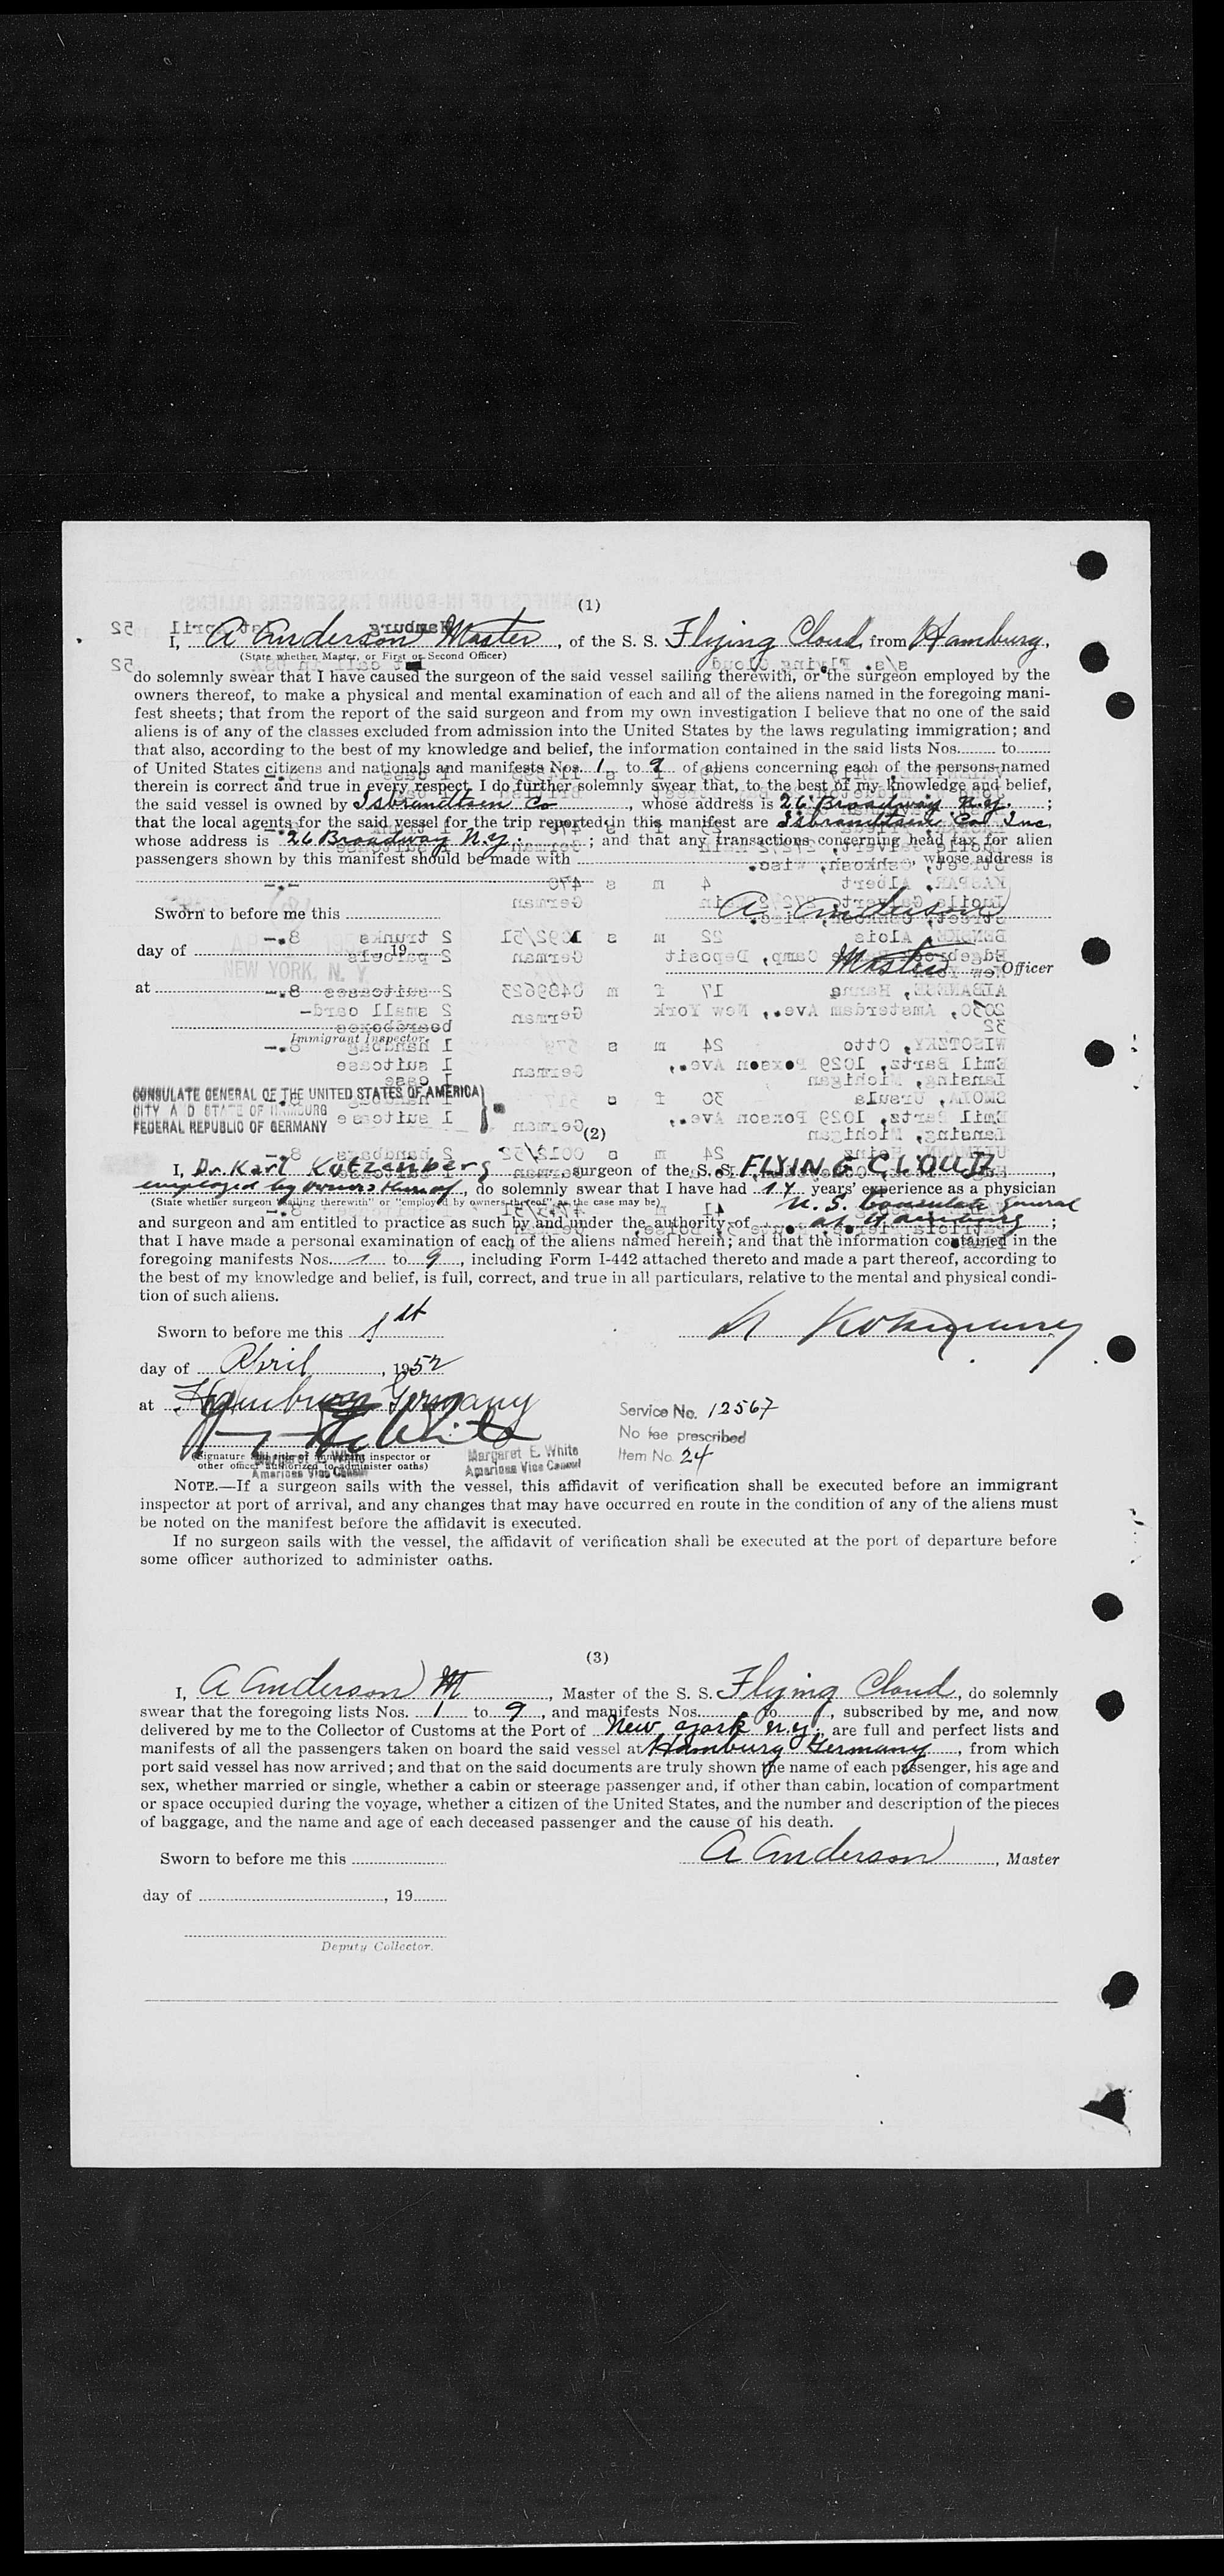 (1)
I, A Anderson Master, of the S. S. Flying Cloud from Hamburg,
(State whether Master, or First or Second Officer)
do solemnly swear that I have caused the surgeon of the said vessel sailing therewith, or the surgeon employed by the
owners thereof, to make a physical and mental examination of each and all of the aliens named in the foregoing mani-
fest sheets; that from the report of the said surgeon and from my own investigation I believe that no one of the said
aliens is of any of the classes excluded from admission into the United States by the laws regulating immigration; and
that also, according to the best of my knowledge and belief, the information contained in the said lists Nos. to
of United States citizens and nationals and manifests Nos. 1 to 9 of aliens concerning each of the persons named
therein is correct and true in every respect. I do further solemnly swear that, to the best of my knowledge and belief,
the said vessel is owned by Isbrandtsen Co, whose address is 26 Broadway N.Y. ;
that the local agents for the said vessel for the trip reported in this manifest are Isbrandtsen Co Inc
whose address is 26 Broadway N.Y. ; and that any transactions concerning head tax for alien
passengers shown by this manifest should be made with , whose address is
Sworn to before me this A. Anderson
day of , 19 Master Officer
NEW YORK, N. Y.
at
Immigrant Inspector.
CONSULATE GENERAL OF THE UNITED STATES OF AMERICA
CITY AND STATE OF HAMBURG
FEDERAL REPUBLIC OF GERMANY
(2)
I, Dr. Karl Kotzenberg surgeon of the S. S. FLYING CLOUD,
employed by owners thereof, do solemnly swear that I have had 17 years' experience as a physician
(State whether surgeon "sailing therewith" or "employed by owners thereof" as the case may be)
U. S. Consulate General
and surgeon and am entitled to practice as such by and under the authority of at Hamburg ;
that I have made a personal examination of each of the aliens named herein; and that the information contained in the
foregoing manifests Nos. 1 to 9, including Form I-442 attached thereto and made a part thereof, according to
the best of my knowledge and belief, is full, correct, and true in all particulars, relative to the mental and physical condi-
tion of such aliens.
Sworn to before me this 1st
day of April, 1952
at Hamburg Germany
Service No. 12567
No fee prescribed
Item No. 24
(Signature and title of immigrant inspector or
other officer authorized to administer oaths)
Margaret E. White
American Vice Consul
Margaret E. White
American Vice Consul
NOTE.—If a surgeon sails with the vessel, this affidavit of verification shall be executed before an immigrant
inspector at port of arrival, and any changes that may have occurred en route in the condition of any of the aliens must
be noted on the manifest before the affidavit is executed.
If no surgeon sails with the vessel, the affidavit of verification shall be executed at the port of departure before
some officer authorized to administer oaths.
(3)
I, A Anderson M, Master of the S. S. Flying Cloud, do solemnly
swear that the foregoing lists Nos. 1 to 9, and manifests Nos. to , subscribed by me, and now
delivered by me to the Collector of Customs at the Port of New York N.Y., are full and perfect lists and
manifests of all the passengers taken on board the said vessel at Hamburg Germany, from which
port said vessel has now arrived; and that on the said documents are truly shown the name of each passenger, his age and
sex, whether married or single, whether a cabin or steerage passenger and, if other than cabin, location of compartment
or space occupied during the voyage, whether a citizen of the United States, and the number and description of the pieces
of baggage, and the name and age of each deceased passenger and the cause of his death.
Sworn to before me this A Anderson, Master
day of , 19
Deputy Collector.